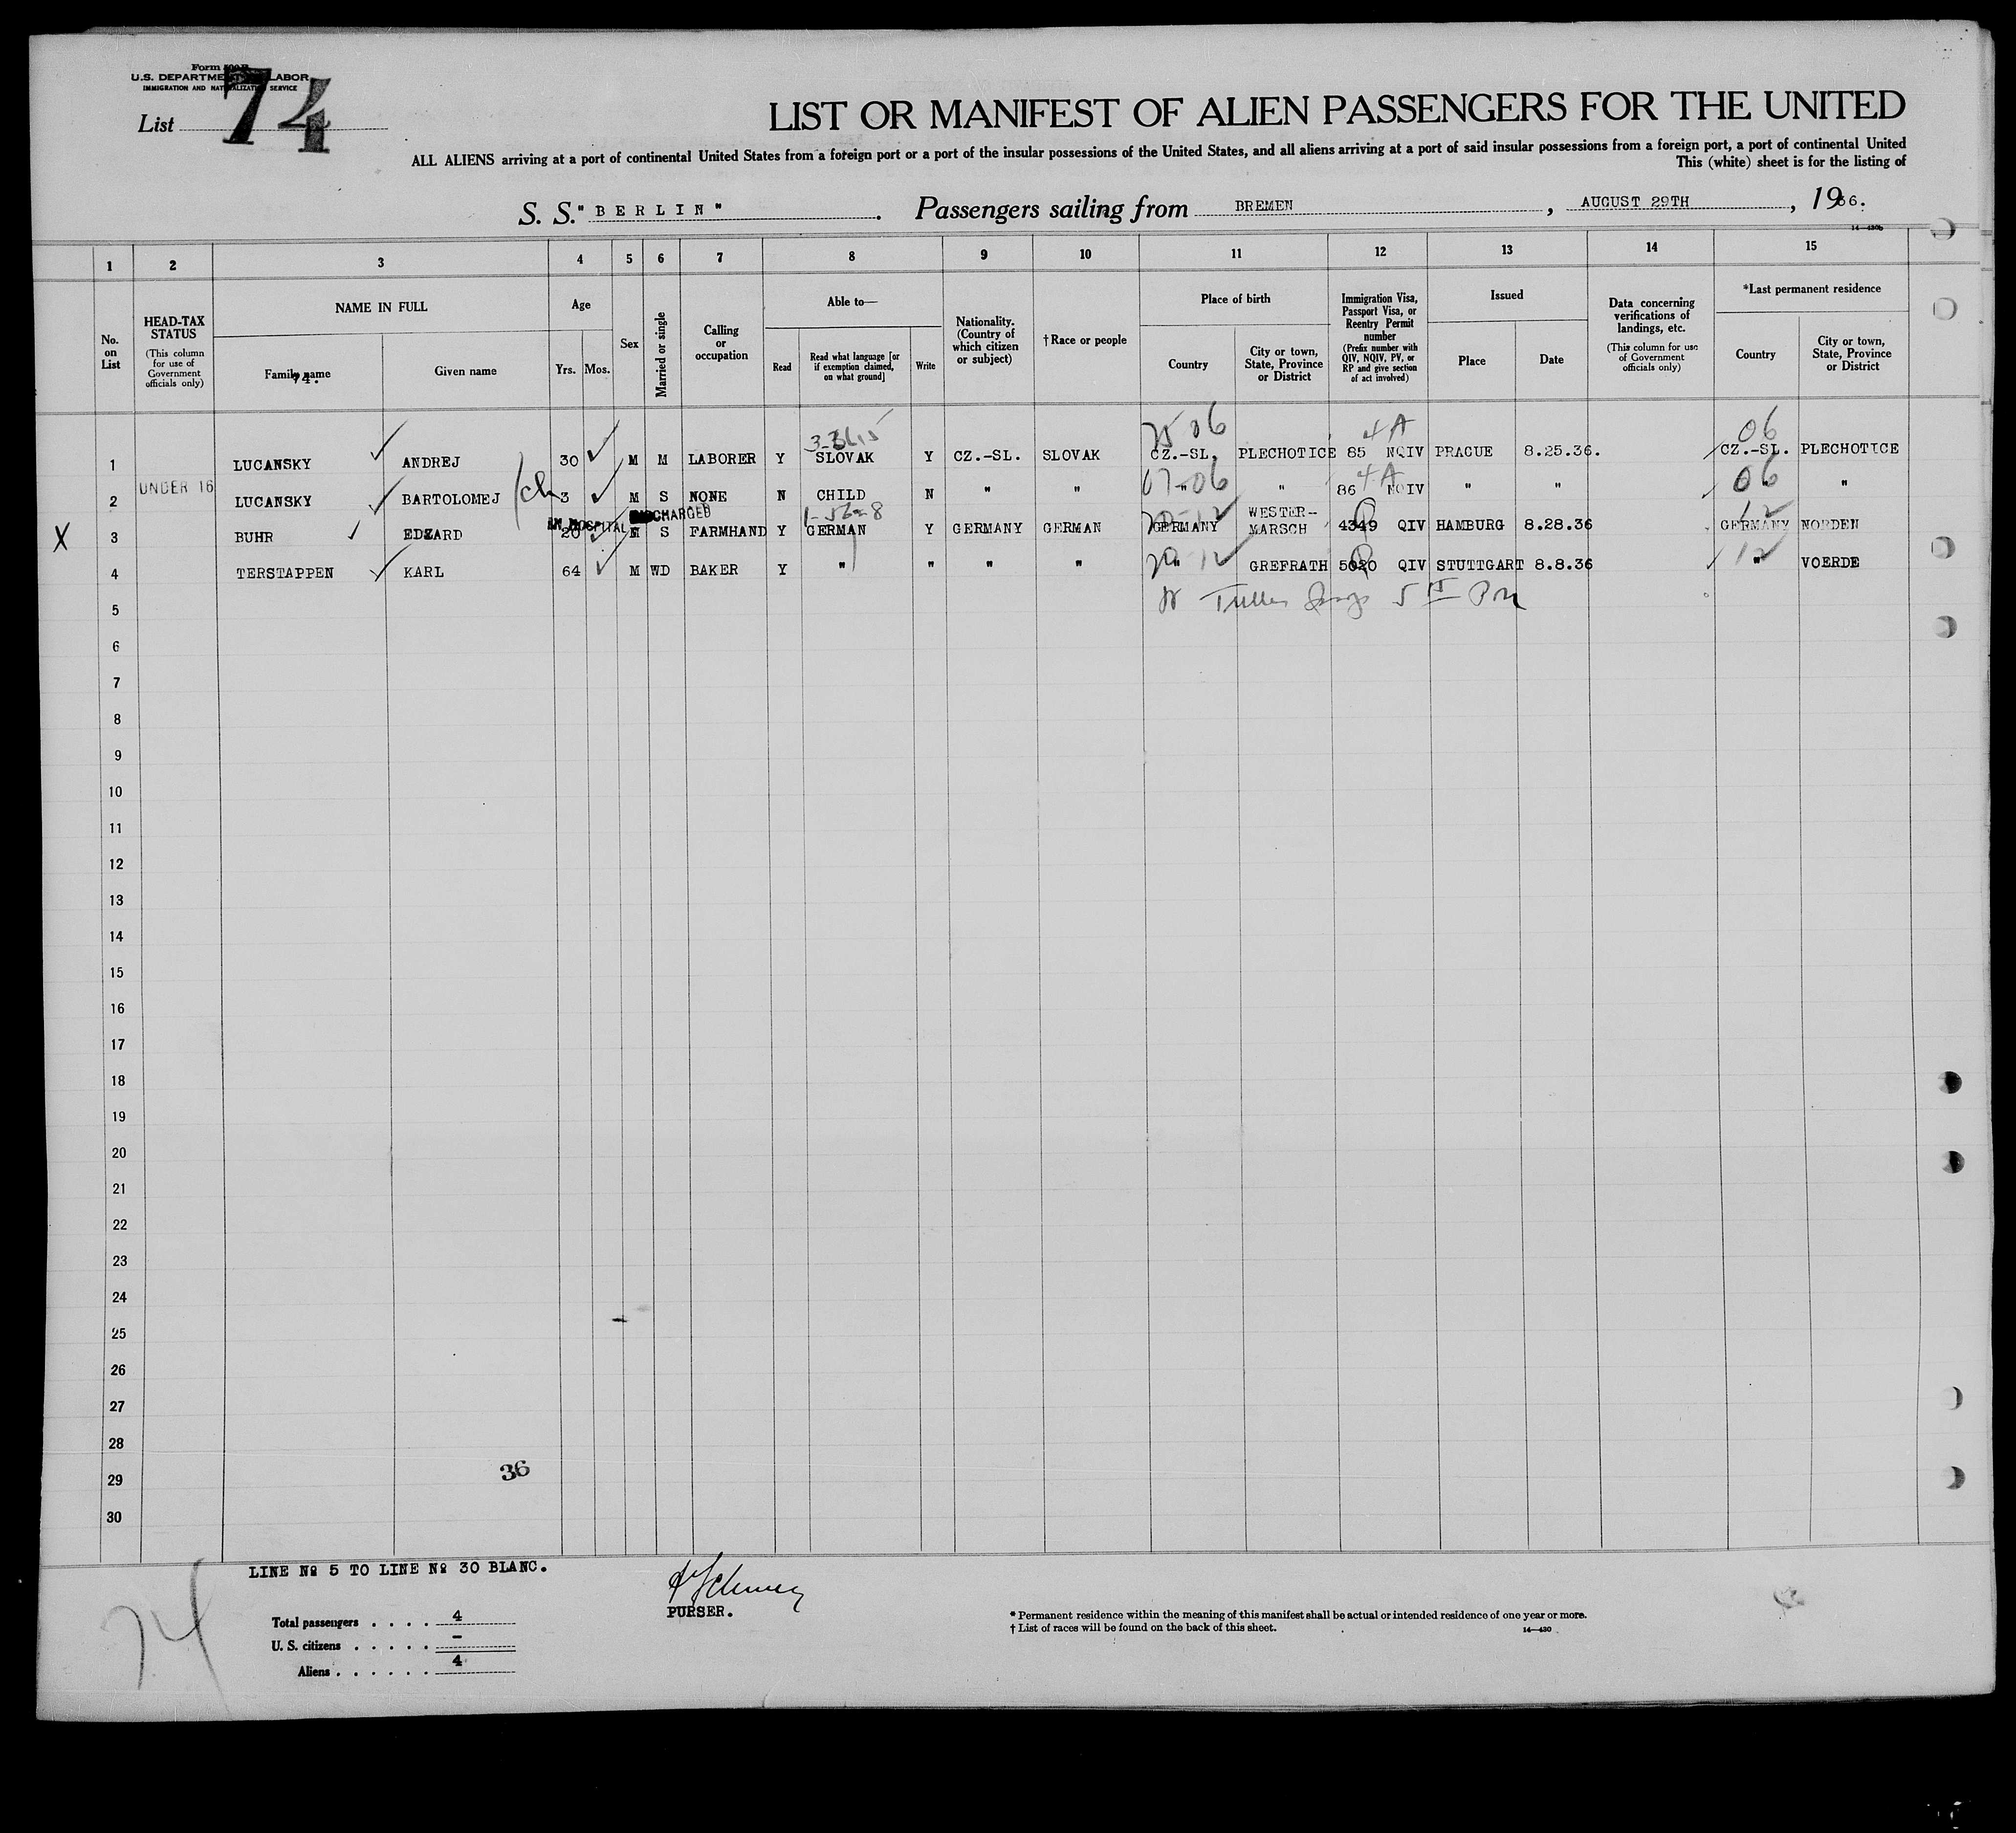 Form 500 B
U.S. DEPARTMENT OF LABOR
IMMIGRATION AND NATURALIZATION SERVICE
List 74
LIST OR MANIFEST OF ALIEN PASSENGERS FOR THE UNITED
ALL ALIENS arriving at a port of continental United States from a foreign port or a port of the insular possessions of the United States, and all aliens arriving at a port of said insular possessions from a foreign port, a port of continental United
This (white) sheet is for the listing of
S. S. "BERLIN". Passengers sailing from BREMEN, AUGUST 29TH, 1936.
14—430b
1 2 3 4 5 6 7 8 9 10 11 12 13 14 15
No. on List
HEAD-TAX STATUS (This column for use of Government officials only)
NAME IN FULL
Family name
74.
Given name
Age
Yrs. Mos.
Sex
Married or single
Calling or occupation
Able to—
Read
Read what language [or if exemption claimed, on what ground]
Write
Nationality. (Country of which citizen or subject)
† Race or people
Place of birth
Country
City or town, State, Province or District
Immigration Visa, Passport Visa, or Reentry Permit number (Prefix number with QIV, NQIV, PV, or RP and give section of act involved)
Issued
Place
Date
Data concerning verifications of landings, etc. (This column for use of Government officials only)
*Last permanent residence
Country
City or town, State, Province or District
06 4 A 06
1 LUCANSKY ANDREJ 30 M M LABORER Y SLOVAK Y CZ.-SL. SLOVAK CZ.-SL. PLECHOTICE 85 NQIV PRAGUE 8.25.36. CZ.-SL. PLECHOTICE
07-06 4 A 06
UNDER 16
2 LUCANSKY BARTOLOMEJ ch 3 M S NONE N CHILD N " " " " 86 NQIV " " " "
IN HOSPITAL DISCHARGED
X 3 BUHR EDZARD 20 M S FARMHAND Y GERMAN Y GERMANY GERMAN GERMANY WESTER-MARSCH 4349 QIV HAMBURG 8.28.36 GERMANY NORDEN
12 12
4 TERSTAPPEN KARL 64 M WD BAKER Y " " " " " GREFRATH 5020 QIV STUTTGART 8.8.36 " VOERDE
5
6
7
8
9
10
11
12
13
14
15
16
17
18
19
20
21
22
23
24
25
26
27
28
29
36
30
LINE No 5 TO LINE No 30 BLANC.
74
PURSER.
Total passengers . . . . 4
U. S. citizens . . . . . —
Aliens . . . . . . 4
* Permanent residence within the meaning of this manifest shall be actual or intended residence of one year or more.
† List of races will be found on the back of this sheet.
14—430